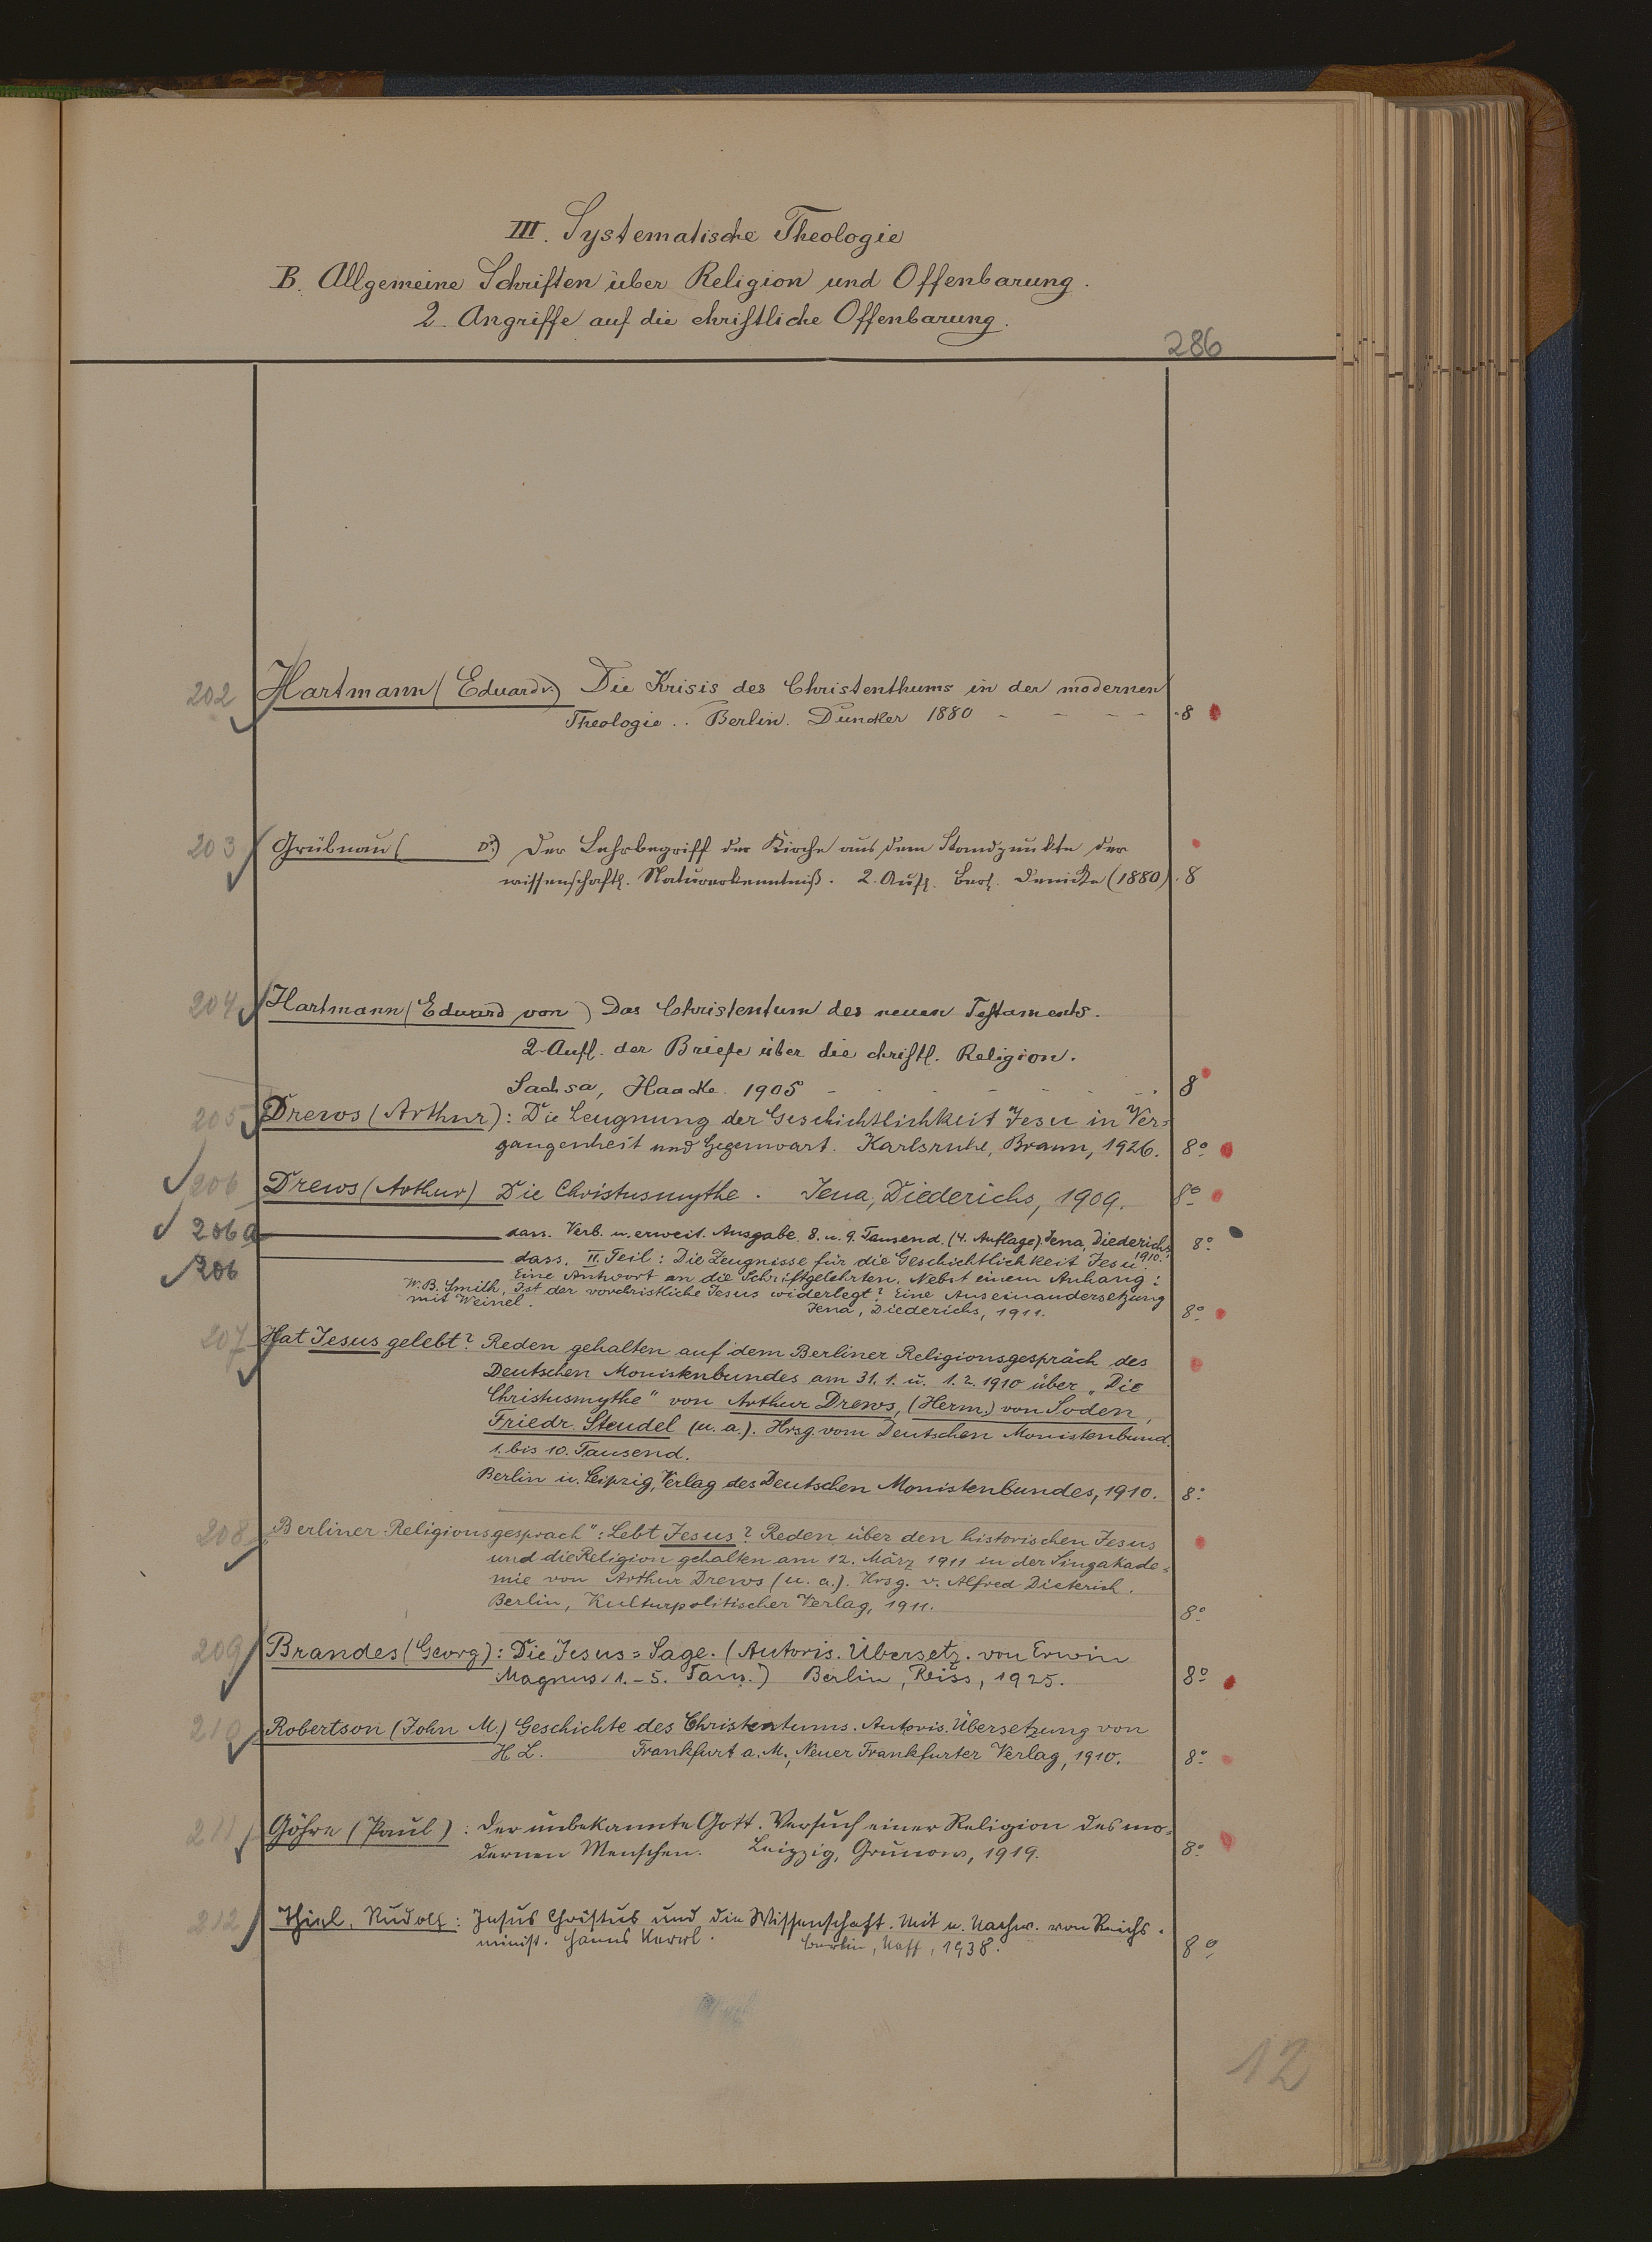 III. Systematische Theologie
B. Allgemeine Schriften über Religion und Offenbarung.
2. Angriffe auf die christliche Offenbarung.
286
202 Hartmann (Eduard v.) Die Krisis des Christenthums in der modernen
Theologie .. Berlin. Duncker 1880 - - - - 8
203 Grübnau ( Dr.) Der Lehrbegriff der Kirche aus dem Standpunkte der
wissenschaftl. Naturerkenntniß. 2. Aufl. Berl. Denicke (1880). 8
204 Hartmann (Eduard von) Das Christentum des neuen Testaments.
2. Aufl. der Briefe über die christl. Religion.
Sachsa, Haacke. 1905 - - - - 8
205 Drews (Arthur): Die Leugnung der Geschichtlichkeit Jesu in Ver=
gangenheit und Gegenwart. Karlsruhe, Braun, 1926. 8°
206 Drews (Arthur) Die Christusmythe. Jena, Diederichs, 1909. 8°
206a dass. Verb. u. erweit. Ausgabe. 8. u. 9. Tausend. (4. Auflage) Jena, Diederichs, 8°
1910.
206 dass. II. Teil: Die Zeugnisse für die Geschichtlichkeit Jesu.
Eine Antwort an die Schriftgelehrten. Nebst einem Anhang:
W. B. Smith, Ist der vorchristliche Jesus widerlegt? Eine Auseinandersetzung
mit Weinel. Jena, Diederichs, 1911. 8°
207 Hat Jesus gelebt? Reden gehalten auf dem Berliner Religionsgespräch des
Deutschen Monistenbundes am 31. 1. u. 1. 2. 1910 über „Die
Christusmythe" von Arthur Drews, (Herm.) von Soden,
Friedr. Steudel (u. a.). Hrsg. vom Deutschen Monistenbund.
1. bis 10. Tausend.
Berlin u. Leipzig, Verlag des Deutschen Monistenbundes, 1910. 8°
208 „Berliner Religionsgespräch": Lebt Jesus? Reden über den historischen Jesus
und die Religion gehalten am 12. März 1911 in der Singakade=
mie von Arthur Drews (u. a.). Hrsg. v. Alfred Dieterich.
Berlin, Kulturpolitischer Verlag, 1911. 8°
209 Brandes (Georg): Die Jesus=Sage. (Autoris. Übersetz. von Erwin
Magnus. 1.-5. Taus.) Berlin, Reiss, 1925. 8°
210 Robertson (John M.) Geschichte des Christentums. Autoris. Übersetzung von
H. L. Frankfurt a. M., Neuer Frankfurter Verlag, 1910. 8°
211 Göhre (Paul): Der unbekannte Gott. Versuch einer Religion des mo=
dernen Menschen. Leipzig, Grunow, 1919. 8°
212 Thiel, Rudolf: Jesus Christus und die Wissenschaft. Mit e. Nachw. von Reichs=
minist. Hanns Kerrl. Berlin, Neff, 1938. 8°
12